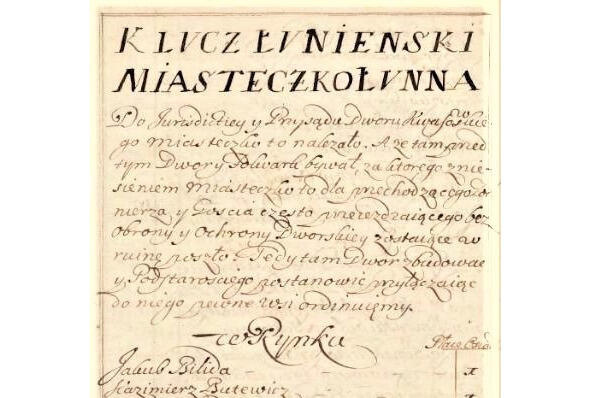 KLUCZ ŁUNIENSKI
MIASTECZKO ŁUNNA
Do Jurisdictiey y Prysądu Dworu Kwasowskie-
go miasteczko to nalezało. A ze tam przed
tym Dwor y Folwark bywał, za ktorego znie-
sieniem miasteczko to dla przechodzącego żoł-
nierza, y Goscia często przeiezdzaiącego bez
obrony y Ochrony Dworskiey zostaiące w
ruinę poszło. Tedy tam Dwor zbudowac
y Podstarosciego postanowić, wyłączaiąc
do niego pewne wsi ordinuiemy.
w Rynku
Place
Jakub Biłida 1
Kazimierz Butewicz 1